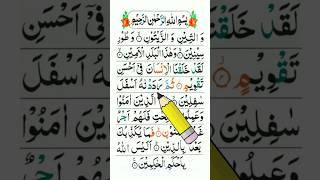 بِسْمِ اللهِ الرَّحْمٰنِ الرَّحِيْمِ
وَ التِّيْنِ وَ الزَّيْتُوْنِ ۙ وَ طُوْرِ
سِيْنِيْنَ ۙ وَ هٰذَا الْبَلَدِ الْاَمِيْنِ ۙ
لَقَدْ خَلَقْنَا الْاِنْسَانَ فِيْٓ اَحْسَنِ
تَقْوِيْمٍ ۫ ثُمَّ رَدَدْنٰهُ اَسْفَلَ
سٰفِلِيْنَ ۙ اِلَّا الَّذِيْنَ اٰمَنُوْا
وَعَمِلُوا الصّٰلِحٰتِ فَلَهُمْ اَجْرٌ
غَيْرُ مَمْنُوْنٍ ۭ فَمَا يُكَذِّبُكَ
بَعْدُ بِالدِّيْنِ ۭ اَلَيْسَ اللّٰهُ
بِاَحْكَمِ الْحٰكِمِيْنَ